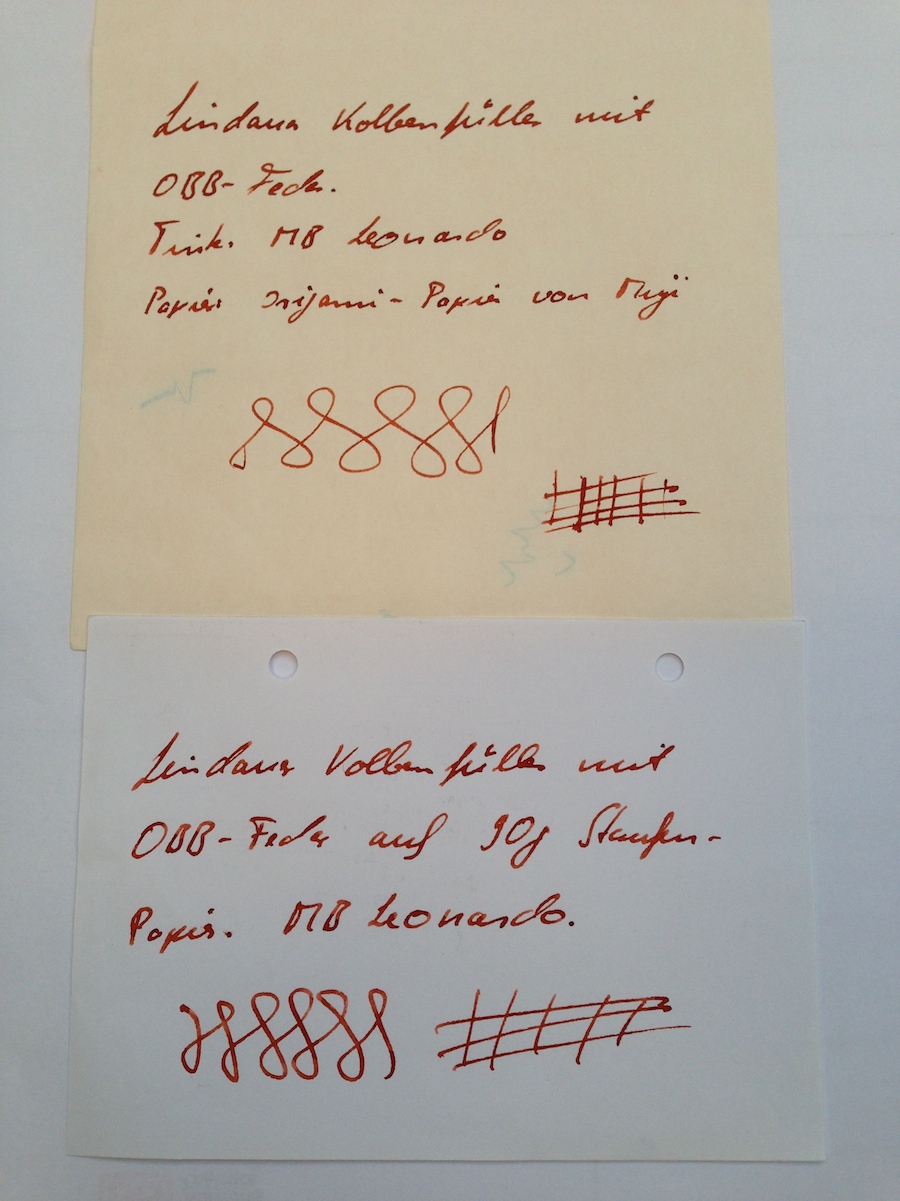 Lindauer Kolbenfüller mit
OBB-Feder.
Tinte: MB Leonardo
Papier: Origami-Papier von Muji
Lindauer Kolbenfüller mit
OBB-Feder auf 90g Staufen-
Papier. MB Leonardo.